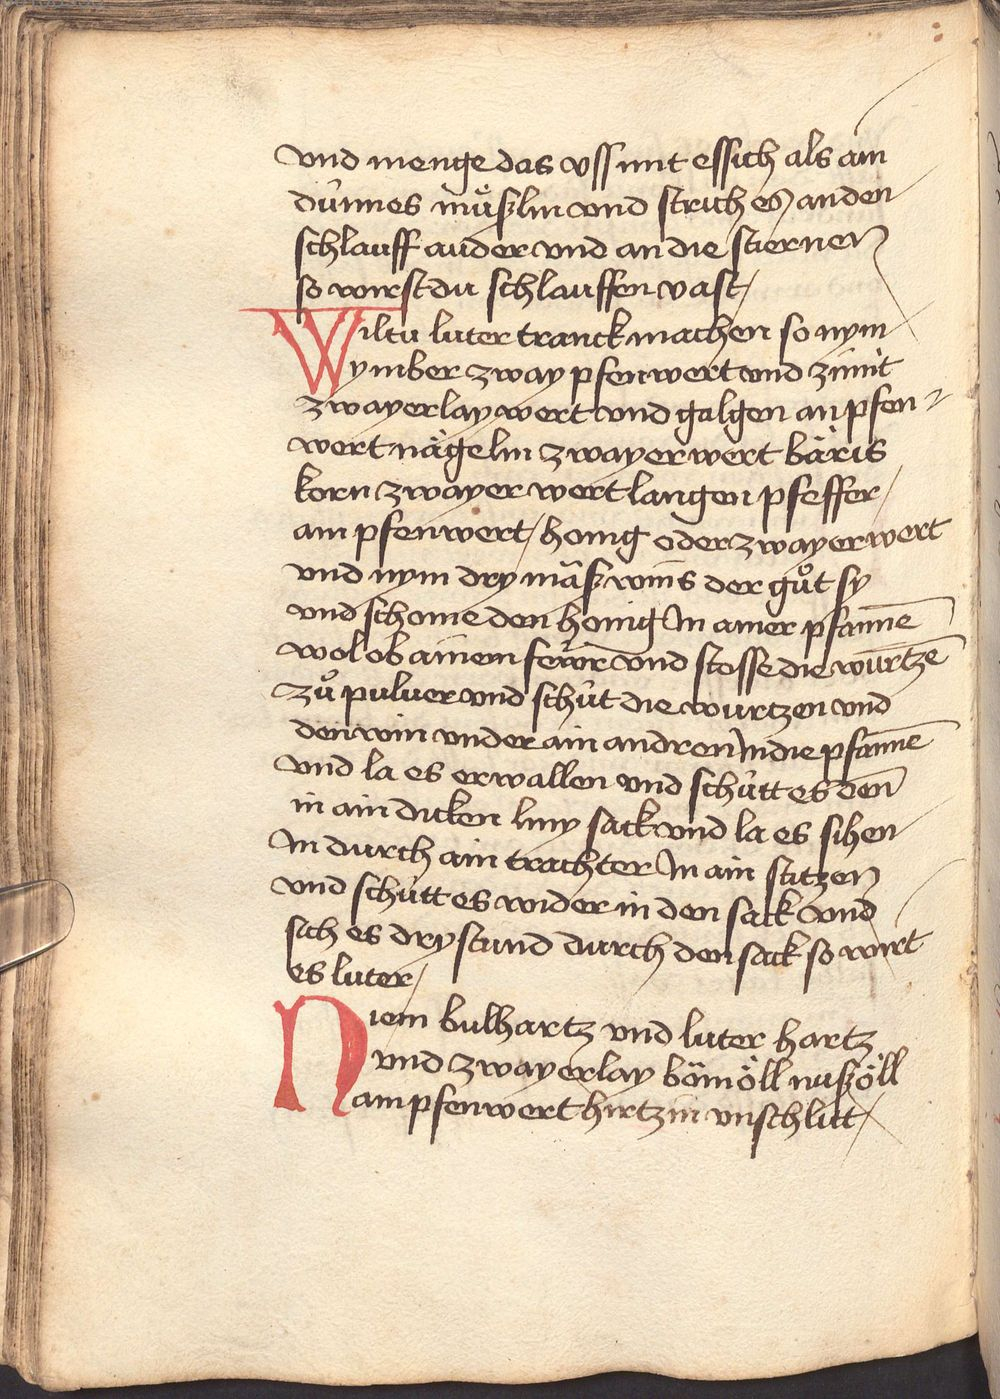 vnd menge das vss mit essich als ain
dünnes müͦßlin vnd strich es an den
schlauff auder vnd an die stiernen
so wirst du schlauffen vast /
Wiltu luter tranck machen so nym
ymber zway pfenwert vnd zimit
zwayerlay wert vnd galgen an pfen
wert nägelin zwayer wert bäris
korn zwayer wert langen pfeffer /
ain pfenwert / honig oder zwayer wert
vnd nym dry mäß wins der guͦt sy
vnd schome den honig In ainer pfannē
wol ob ainem fewr vnd stosse die wurtzē
zuͦ puluer vnd schüt die wurtzen vnd
den win vnder ain andren In die pfannē
vnd la es erwallen vnd schütt es den̄
in ain dicken liny sack vnd la es sihen
In durch ain trachter In ain stitzen
vnd schütt es wider in den sack vnd
sich es dry stund durch den sack so wirt
es luter /
Niem bulhartz vnd luter hartz
vnd zwayerlay bömöll nußöll
ain pfenwert hirtzin vnschlitt /